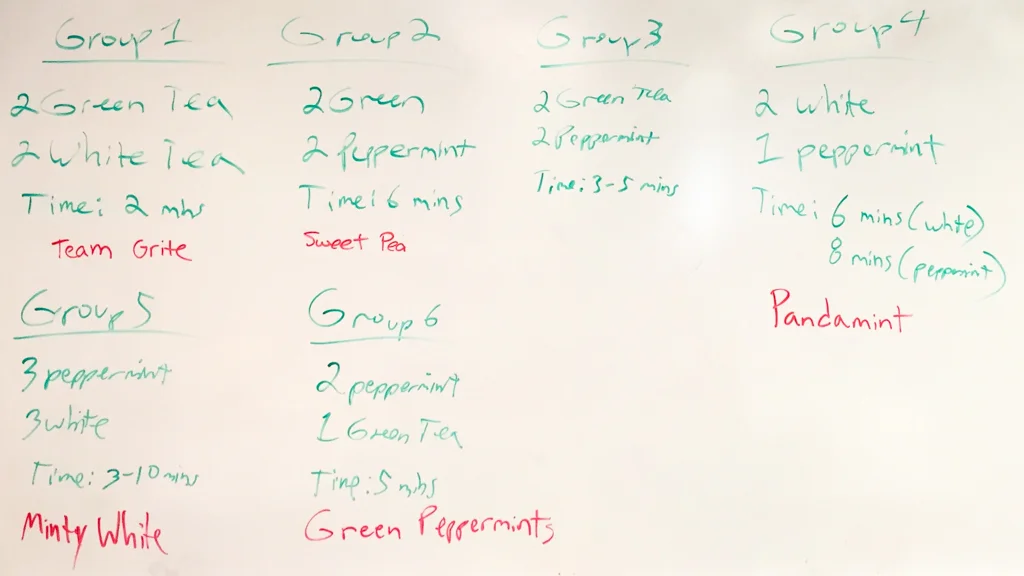 Group 1
2 Green Tea
2 White Tea
Time: 2 mins
Team Grite
Group 2
2 Green
2 Peppermint
Time: 6 mins
Sweet Pea
Group 3
2 Green Tea
2 Peppermint
Time: 3-5 mins
Group 4
2 white
1 peppermint
Time: 6 mins (white)
8 mins (peppermint)
Pandamint
Group 5
3 peppermint
3 white
Time: 3-10 mins
Minty White
Group 6
2 peppermint
1 Green Tea
Time: 5 mins
Green Peppermints